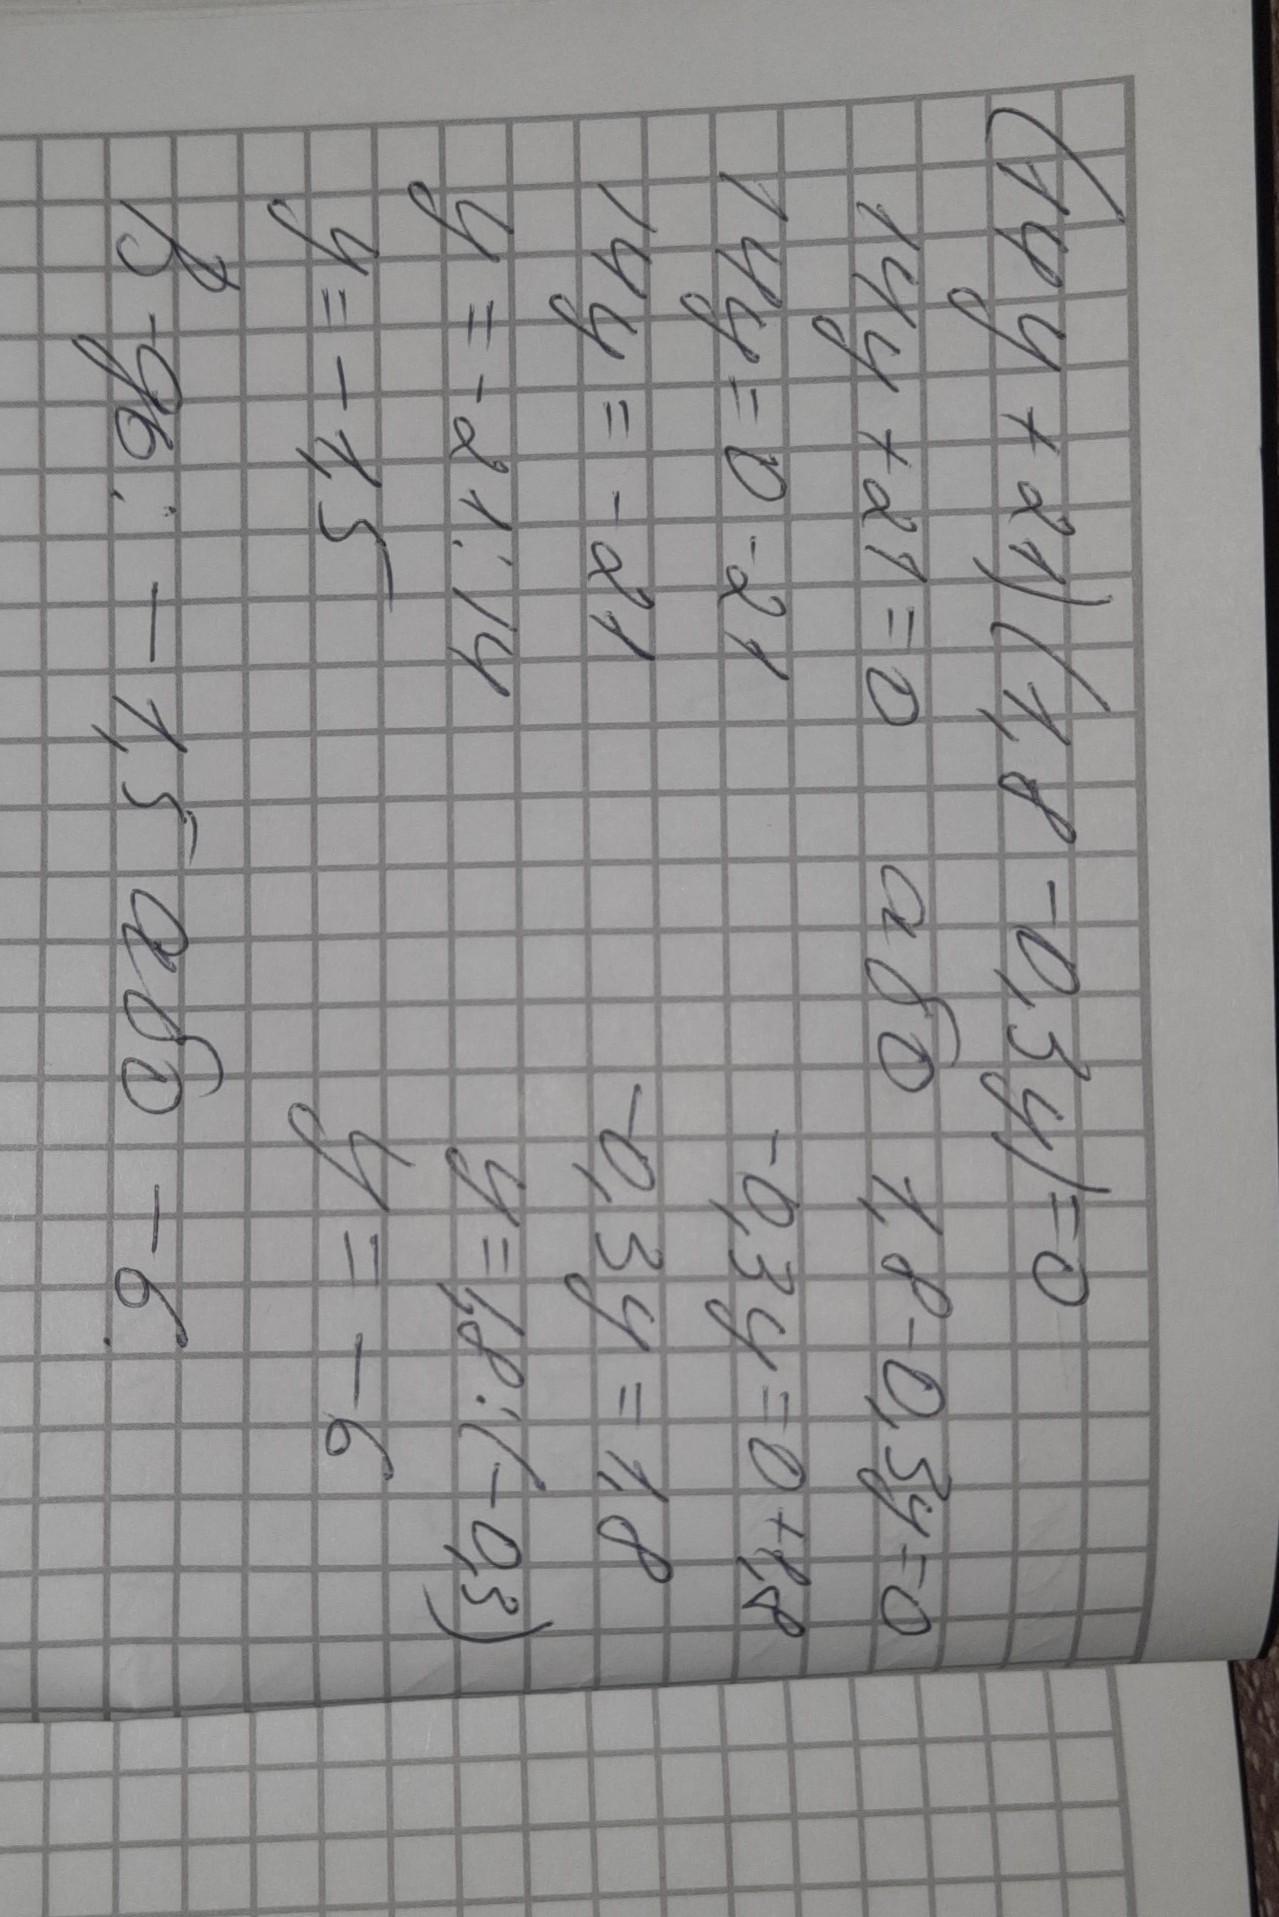 (14y + 21)(1,8 - 0,3y) = 0
14y + 21 = 0 або 1,8 - 0,3y = 0
14y = 0 - 21 -0,3y = 0 + 1,8
14y = -21 -0,3y = 1,8
y = -21 : 14 y = 1,8 : (-0,3)
y = -1,5 y = -6
В-дь : -1,5 або -6.